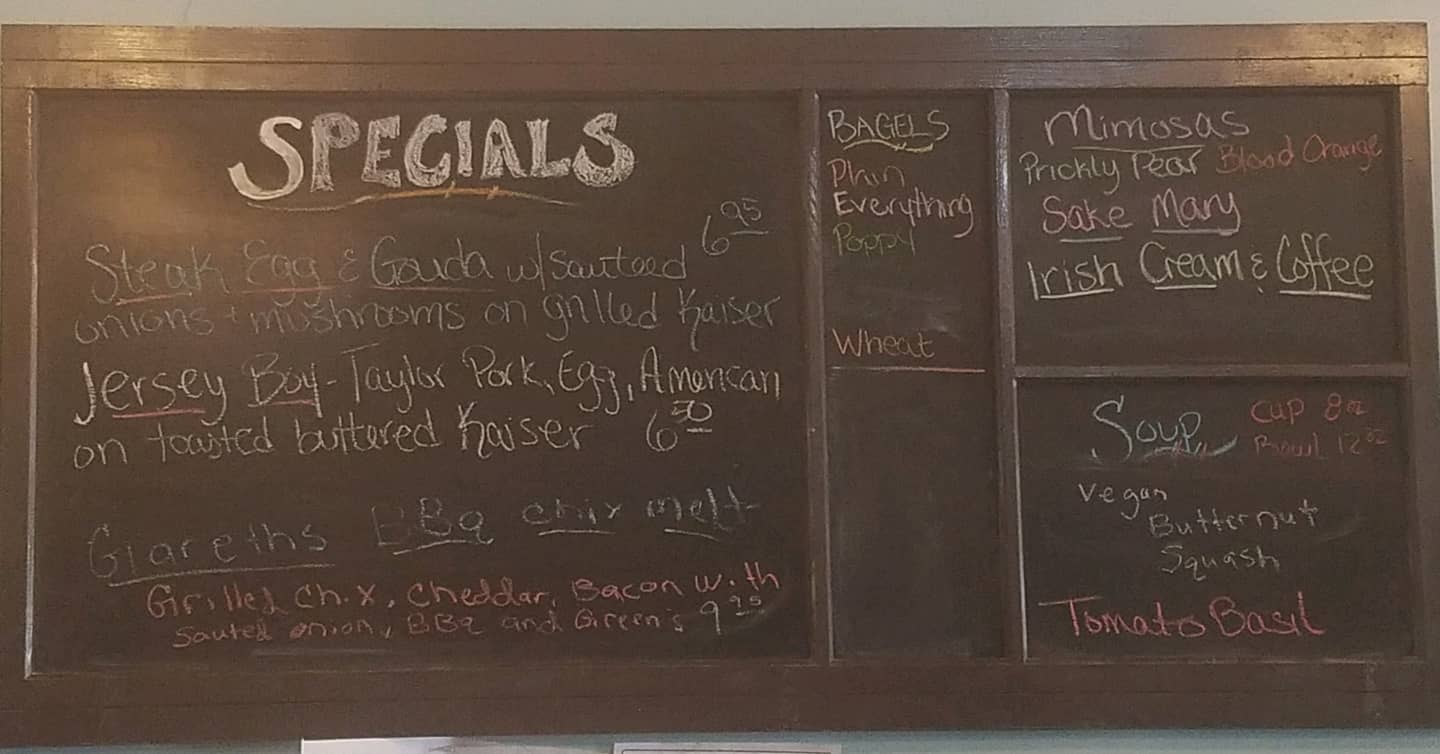 SPECIALS
Steak Egg & Gouda w/ Sauteed 6.95
onions + mushrooms on grilled Kaiser
Jersey Boy - Taylor Pork, Egg, American
on toasted buttered Kaiser 6.50
Gareths BBq chix melt
Grilled Ch.x, cheddar, Bacon with
Sauted onion, BBq and Green's 9.95
BAGELS
Plain
Everything
Poppy
Wheat
Mimosas
Prickly Pear Blood Orange
Sake Mary
Irish Cream & Coffee
Soup cup 8oz
Bowl 12oz
Vegan
Butternut
Squash
Tomato Basil